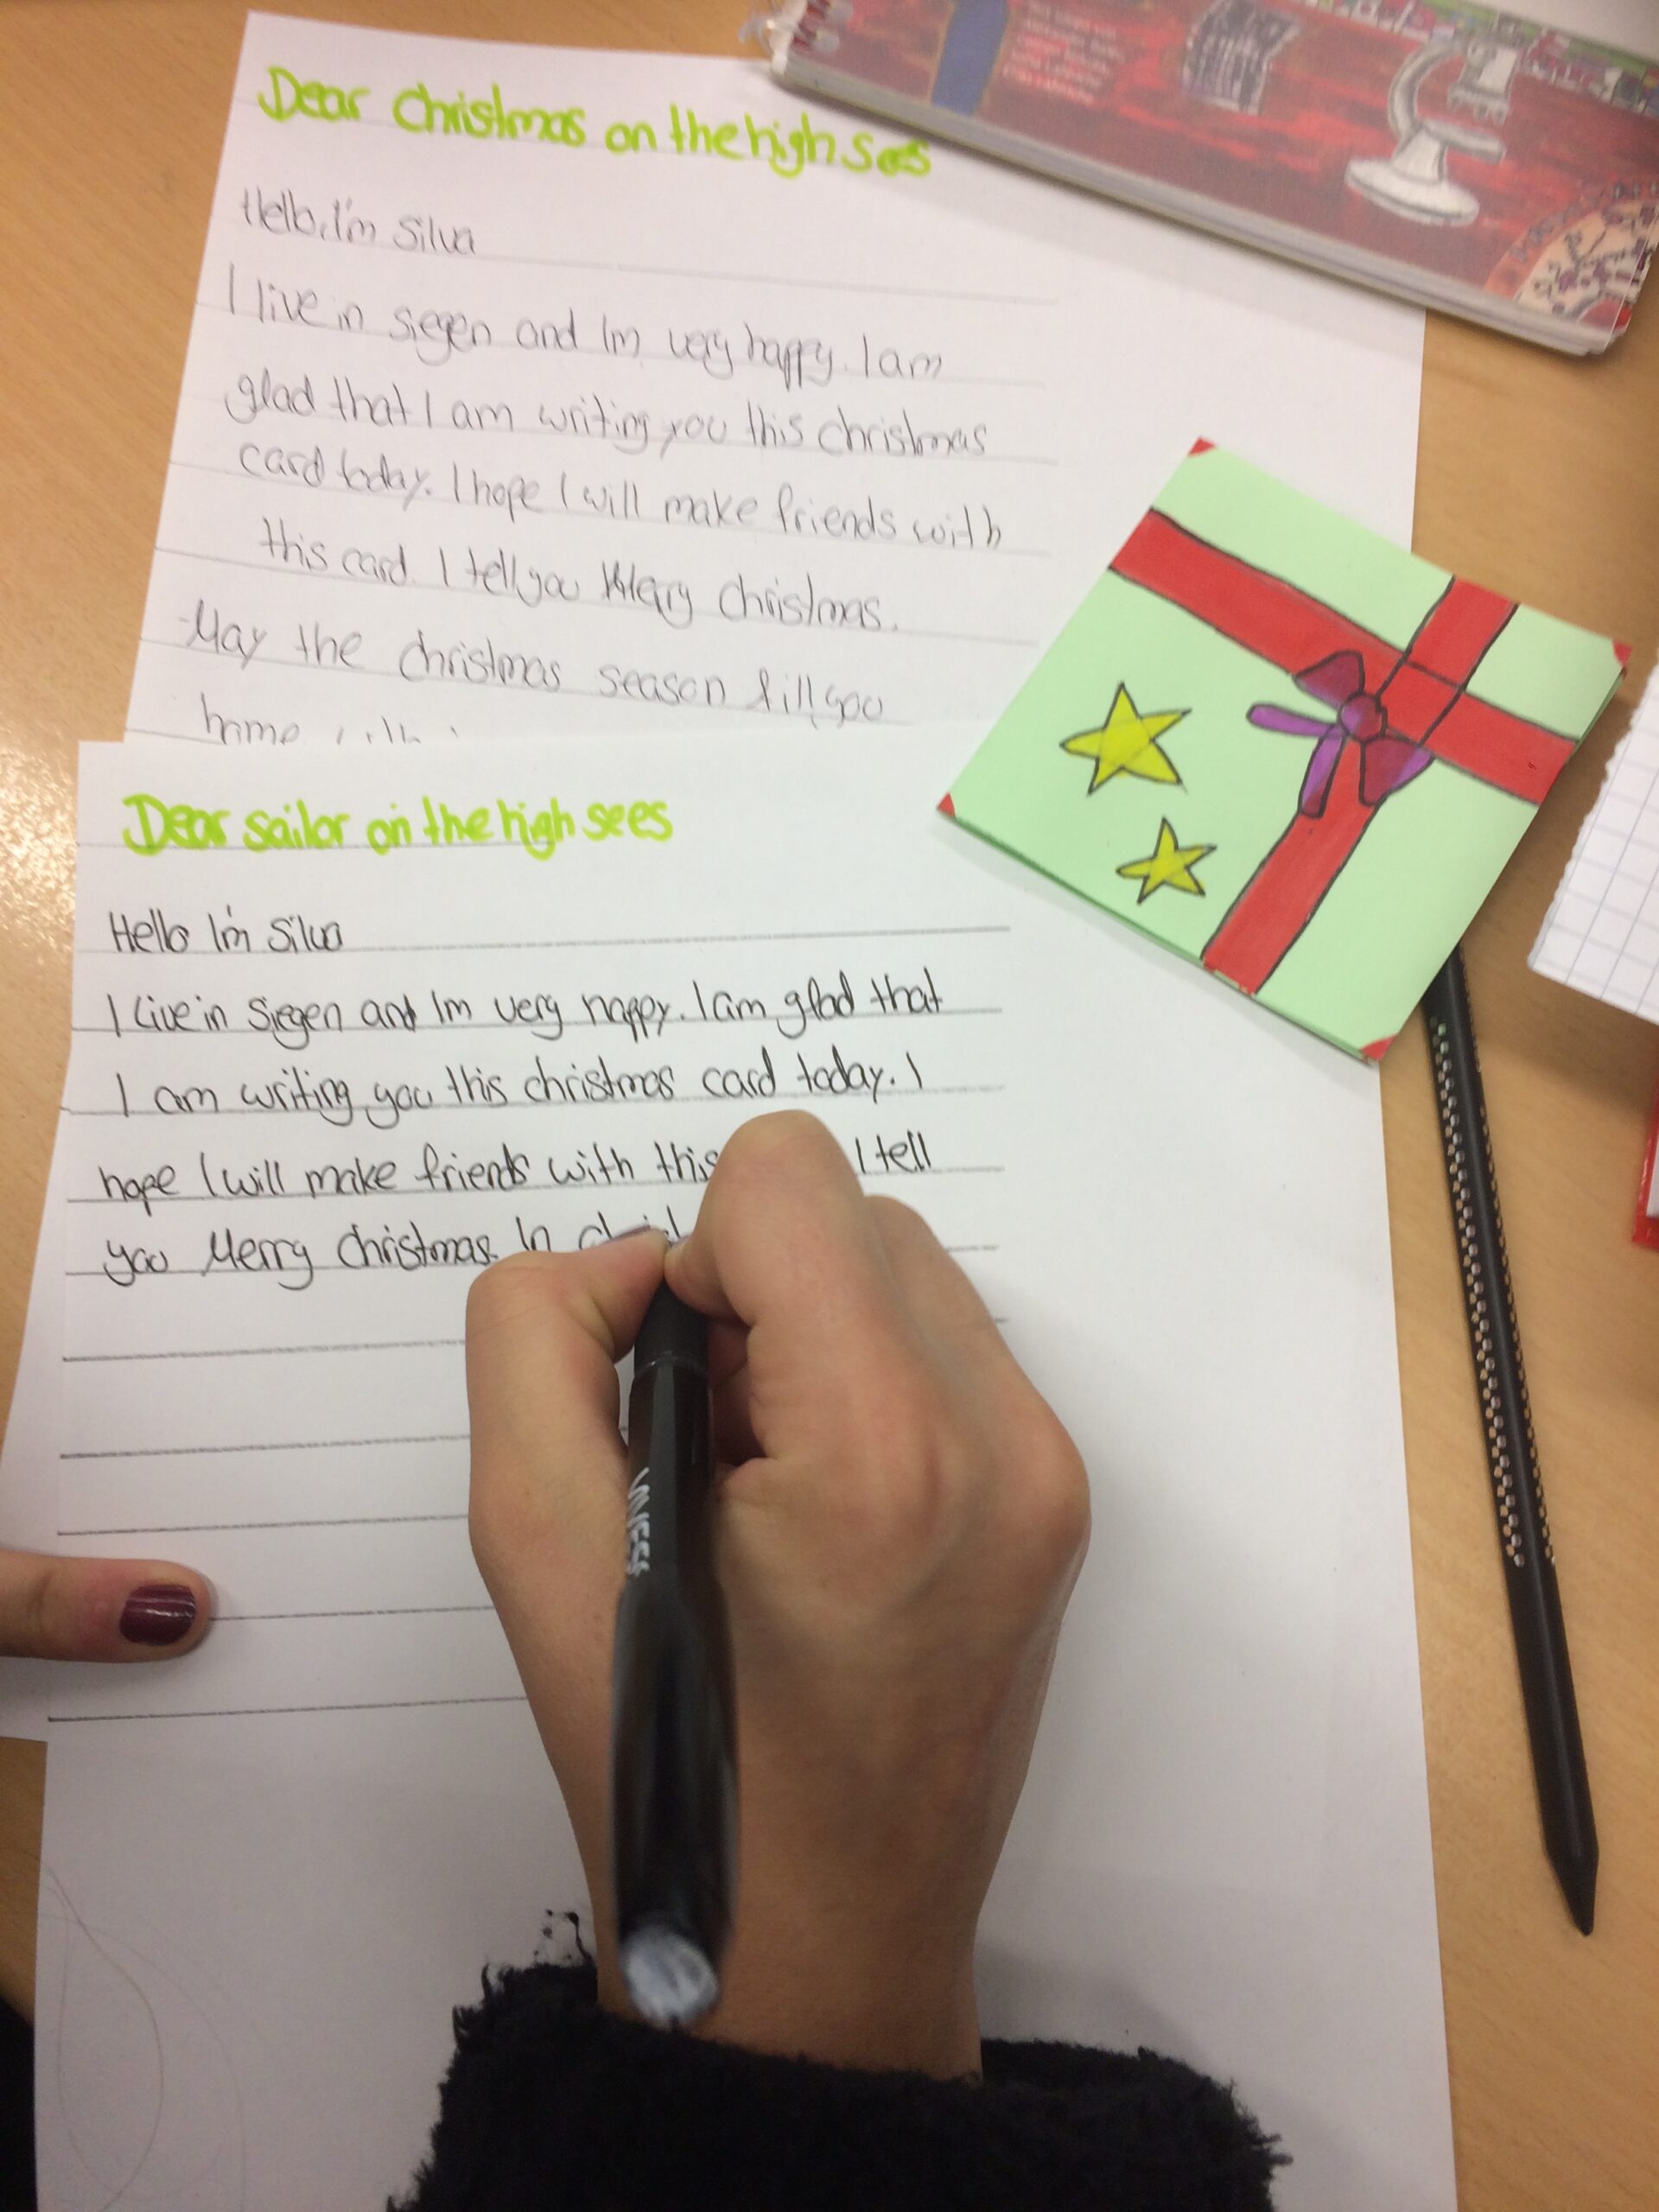 Dear Christmas on the high sees
Hello, I'm Silva
I live in Siegen and Im very happy. I am
glad that I am writing you this christmas
card today. I hope I will make friends with
this card. I tell you Merry christmas.
May the christmas season fill you
home
Dear sailor on the high sees
Hello I'm Silva
I live in Siegen and Im very happy. I am glad that
I am writing you this christmas card today. I
hope I will make friends with this I tell
you Merry christmas. In